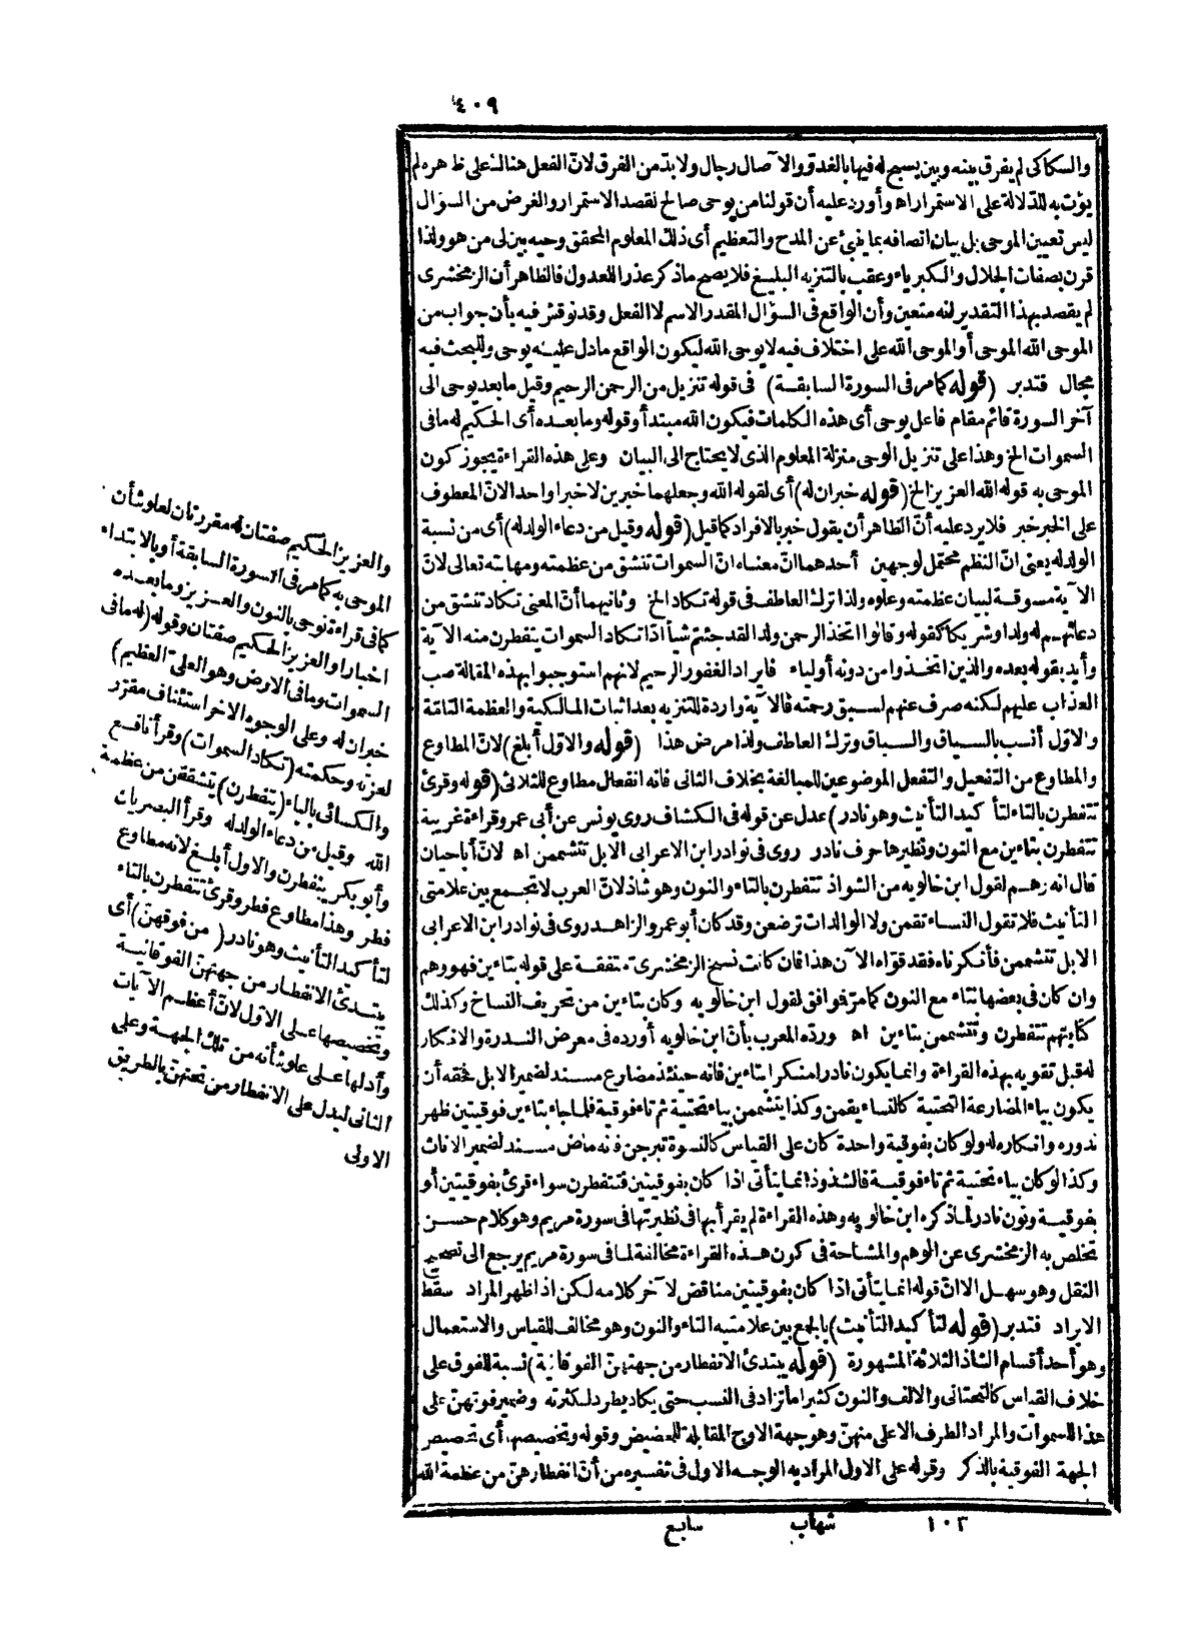 ٤٠٩
والسكاكى لم يفرق بينه وبين يسبح له فيها بالغدو والآصال رجال ولا بدّ من الفرق لانّ الفعل هنالك على ظاهره لم
يؤت به للدّلالة على الاستمرار اه وأورد عليه أن قولنا من يوحى صالح لقصد الاستمرار والغرض من السؤال
ليس تعيين الموحى بل بيان اتصافه بما ينبئ عن المدح والتعظيم أى ذلك المعلوم المحقق وحيه بين لى من هو ولذا
قرن بصفات الجلال والكبرياء وعقب بالتنزيه البليغ فلا يصح ما ذكر عذرا للعدول فالظاهر أن الزمخشرى
لم يقصد بهذا التقدير انه متعين وأن الواقع فى السؤال المقدر الاسم لا الفعل وقد نوقش فيه بأن جواب من
الموحى الله الموحى أو الموحى الله على اختلاف فيه لا يوحى الله ليكون الواقع ما دل عليه يوحى وللبحث فيه
مجال فتدبر (قوله كما مر فى السورة السابقة) فى قوله تنزيل من الرحمن الرحيم وقيل ما بعد يوحى الى
آخر السورة قائم مقام فاعل يوحى أى هذه الكلمات فيكون الله مبتدأ وقوله وما بعده أى الحكيم له ما فى
السموات الخ وهذا على تنزيل الوحى منزلة المعلوم الذى لا يحتاج الى البيان وعلى هذه القراءة يجوز كون
الموحى به قوله الله العزيز الخ (قوله خبران له) أى لقوله الله وجعلهما خبرين لا خبرا واحدا لانّ المعطوف
على الخبر خبر فلا يرد عليه أنّ الظاهر أن يقول خبر بالافراد كما قيل (قوله وقيل من دعاء الولد له) أى من نسبة
الولد له يعنى انّ النظم محتمل لوجهين أحدهما انّ معناه انّ السموات تنشق من عظمته ومهابته تعالى لانّ
الآية مسوقة لبيان عظمته وعلوه ولذا ترك العاطف فى قوله تكاد الخ وثانيهما أنّ المعنى تكاد تنشق من
دعائهم له ولدا وشريكا كقوله وقالوا اتخذ الرحمن ولدا لقد جئتم شيأ ادّا تكاد السموات يتفطرن منه الآية
وأيد بقوله بعده والذين اتخذوا من دونه أولياء فايراد الغفور الرحيم لانهم استوجبوا بهذه المقالة صب
العذاب عليهم لكنه صرف عنهم لسبق رحمته فالآية واردة للتنزيه بعد اثبات المالكية والعظمة التامّة
والاوّل أنسب بالسياق والسباق وترك العاطف ولذا مرض هذا (قوله والاوّل أبلغ) لانّ المطاوع
والمطاوع من التفعيل والتفعل الموضوعين للمبالغة بخلاف الثانى فانه انفعال مطاوع للثلاثى (قوله وقرئ
تتفطرن بالتاء لتأكيد التأنيث وهو نادر) عدل عن قوله فى الكشاف روى يونس عن أبى عمرو قراءة غريبة
تتفطرن بتاءين مع النون ونظيرها حرف نادر روى فى نوادر ابن الاعرابى الابل تتشممن اه لانّ أباحيان
قال انه وهم لقول ابن خالويه من الشواذ تتفطرن بالتاء والنون وهو شاذ لانّ العرب لا تجمع بين علامتى
التأنيث فلا تقول النساء تقمن ولا الوالدات ترضعن وقد كان أبو عمرو الزاهد روى فى نوادر ابن الاعرابى
الابل تتشممن فأنكرناه فقد قوّاه الآن هذا فان كانت نسخ الزمخشرى متفقة على قوله بتاءين فهو وهم
وان كان فى بعضها بتاء مع النون كما مر فوافق لقول ابن خالويه وكان بتاءين من تحريف النساخ وكذلك
كتابتهم تتفطرن وتتشممن بتاءين اه وردّه المعرب بأنّ ابن خالويه أورده فى معرض الندرة والانكار
له قبل تقويه بهذه القراءة وانما يكون نادرا منكرا بتاءين فانه حينئذ مضارع مسند لضمير الابل فحقه أن
يكون بياء المضارعة التحتية كالنساء يقمن وكذا يتشممن بياء تحتية ثم تاء فوقية فلما جاء بتاءين فوقيتين ظهر
ندوره وانكاره له ولو كان بفوقية واحدة كان على القياس كالنسوة تبرجن فانه ماض مسند لضمير الاناث
وكذا لو كان بياء تحتية ثم تاء فوقية فالشذوذ انما يتأتى اذا كان بفوقيتين فتتفطرن سواء قرئ بفوقيتين أو
بفوقية ونون نادر لما ذكره ابن خالويه وهذه القراءة لم يقرأ بها فى نظيرتها فى سورة مريم وهو كلام حسن
تخلص به الزمخشرى عن الوهم والمشاحة فى كون هذه القراءة مخالفة لما فى سورة مريم يرجع الى تصحيح
النقل وهو سهل الا انّ قوله انما يتأتى اذا كان بفوقيتين مناقض لآخر كلامه لكن اذا ظهر المراد سقط
الايراد فتدبر (قوله لتأكيد التأنيث) بالجمع بين علامتيه التاء والنون وهو مخالف للقياس والاستعمال
وهو أحد أقسام الشاذ الثلاثة المشهورة (قوله يبتدئ الانفطار من جهتهنّ الفوقانية) نسبة للفوق على
خلاف القياس كالتحتانى والالف والنون كثيرا ما تزاد فى النسب حتى يكاد يطرد لكثرته وضمير فوقهنّ على
هذا للسموات والمراد الطرف الاعلى منهنّ وهو جهة الاوج المقابلة للحضيض وقوله وتخصيصها أى تخصيص
الجهة الفوقية بالذكر وقوله على الاول المراد به الوجه الاول فى تفسيره من أنّ انفطارهنّ من عظمة الله
والعزيز الحكيم صفتان له مقررتان لعلو شأن
الموحى به كما مر فى السورة السابقة أو بالابتداء
كما فى قراءة نوحى بالنون والعزيز وما بعده
اخبار أو العزيز الحكيم صفتان وقوله (له ما فى
السموات وما فى الارض وهو العلىّ العظيم)
خبران له وعلى الوجوه الاخر استئناف مقرّر
لعزته وحكمته (تكاد السموات) وقرأ نافع
والكسائى بالياء (يتفطرن) يتشققن من عظمة
الله وقيل من دعاء الولد له وقرأ البصريان
وأبو بكر ينفطرن والاول أبلغ لانه مطاوع
فطر وهذا مطاوع فطر وقرئ تتفطرن بالتاء
لتأكيد التأنيث وهو نادر (من فوقهنّ) أى
يبتدئ الانفطار من جهتهنّ الفوقانية
وتخصيصها على الاوّل لانّ أعظم الآيات
وأدلها على علو شأنه من تلك الجهة وعلى
الثانى ليدل على الانفطار من تحتهنّ بالطريق
الاولى
١٠٣ شهاب سابع